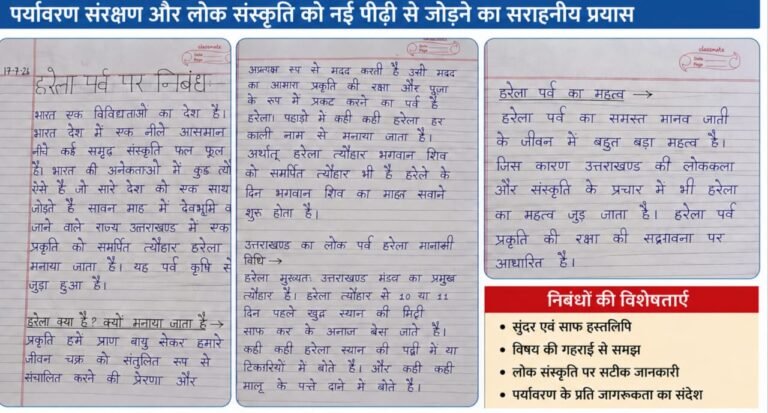 पर्यावरण संरक्षण और लोक संस्कृति को नई पीढ़ी से जोड़ने का सराहनीय प्रयास
17-7-26
हरेला पर्व पर निबंध
भारत एक विविधताओ का देश है।
भारत देश में एक नीले आसमान
नीचे कई समृद्ध संस्कृति फल फूल
है। भारत की अनेकताओ में कुछ त्यौ
ऐसे है जो सारे देश को एक साथ
जोड़ते है सावन माह में देवभूमि क
जाने वाले राज्य उत्तराखण्ड में एक
प्रकृति को समर्पित त्यौहार हरेला
मनाया जाता है। यह पर्व कृषि से
जुड़ा हुआ है।
हरेला क्या है? क्यों मनाया जाता है →
प्रकृति हमें प्राण वायु सेकर हमारे
जीवन चक्र को संतुलित रूप से
संचालित करने की प्रेरणा और
classmate
Date
Page
अप्रत्यक्ष रूप से मदद करती है उसी मदद
का आभार प्रकृति की रक्षा और पूजा
के रूप में प्रकट करने का पर्व है
हरेला। पहाड़ो में कही कही हरेला हर
काली नाम से मनाया जाता है।
अर्थात् हरेला त्यौहार भगवान शिव
को समर्पित त्यौहार भी है हरेले के
दिन भगवान शिव का माहत
शुरू होता है।
उत्तराखण्ड का लोक पर्व हरेला मानासी
विधि →
हरेला मुख्यतः उत्तराखण्ड मंडव का प्रमुख
त्यौहार है। हरेला त्यौहार से 10 या 11
दिन पहले खुद स्यान की मिट्टी
साफ कर के अनाज बेस जाते है।
कही कही हरेला स्यान की पट्टी में या
टिकारियों में बोते है। और कही कही
मालू के पत्ते दाने में बोते है।
classmate
Date
Page
हरेला पर्व का महत्व →
हरेला पर्व का समस्त मानव जाती
के जीवन में बहुत बड़ा महत्व है।
जिस कारण उत्तराखण्ड की लोककला
और संस्कृति के प्रचार में भी हरेला
का महत्व जुड़ जाता है। हरेला पर्व
प्रकृति की रक्षा की सद्भावना पर
आधारित है।
classmate
Date
Page
निबंधों की विशेषताएँ
• सुंदर एवं साफ हस्तलिपि
• विषय की गहराई से समझ
• लोक संस्कृति पर सटीक जानकारी
• पर्यावरण के प्रति जागरूकता का संदेश